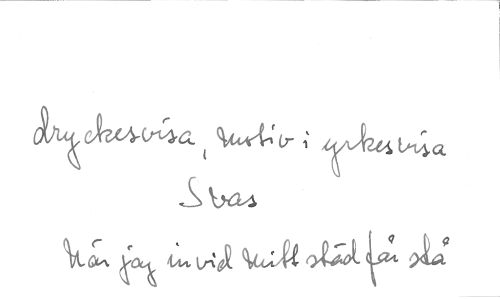 dryckesvisa, motiv i yrkesvisa
Svas
När jag invid mitt städ får stå